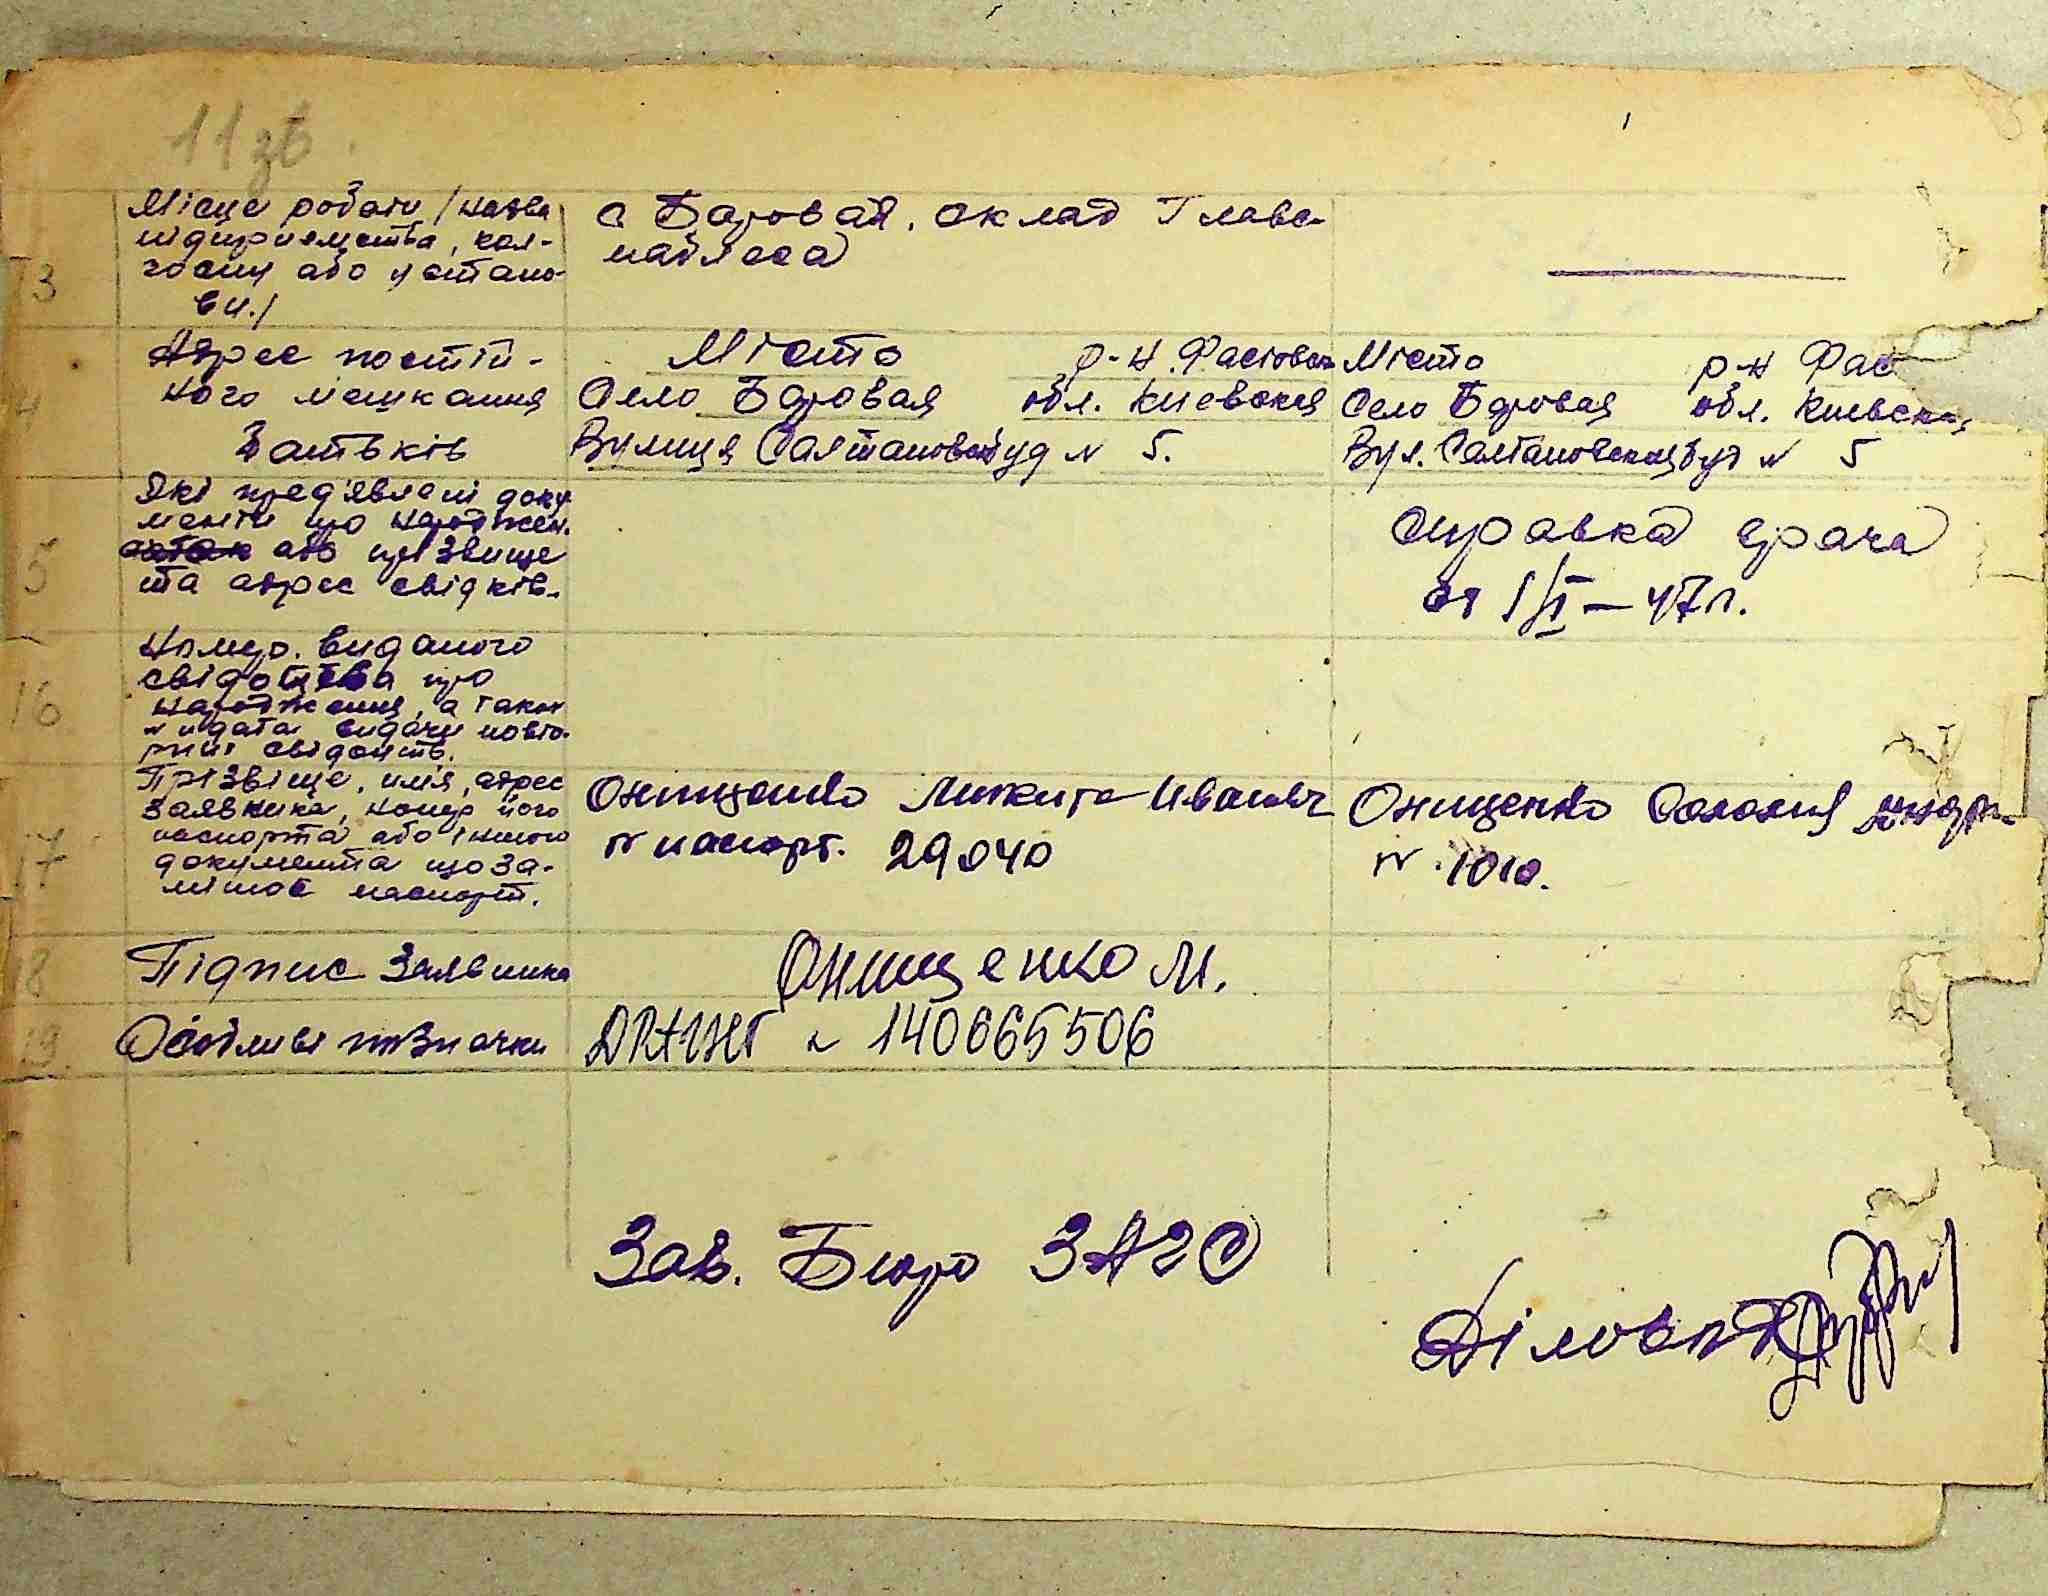 11 зв.
13
Місце роботи / назва
підприємства, кол-
госпу або устано-
ви./
с Боровая. склад Главс-
Адрес постій-
ного мешкання
батьків
Місто р-н. Фастовск
Село Боровая обл. Киевская
Вулиця Салтановск буд № 5.
Місто р-н Фас
Село Боровая обл. Киевская
Вул. Салтановская буд № 5
15
Які пред'явлені доку
менти про народжен.
або прізвище
та адрес свідків.
Справка врача
от 1/I – 47 г.
16
Номер. виданого
свідоцтва про
народження, а також
и дата видачи повто-
рних свідоцтв.
17
Прізвіще, имя, адрес
заявника, номер його
паспорта або іншого
документа що за-
мінює паспорт.
Онищенко Микита Иванович
№ паспорт. 29040
Онищенко Соломия
№ 1010.
18
Підпис заявника
Онищенко М.
19
Особливі позначки
ДРАЦСГ № 140665506
Зав. Бюро ЗАГС